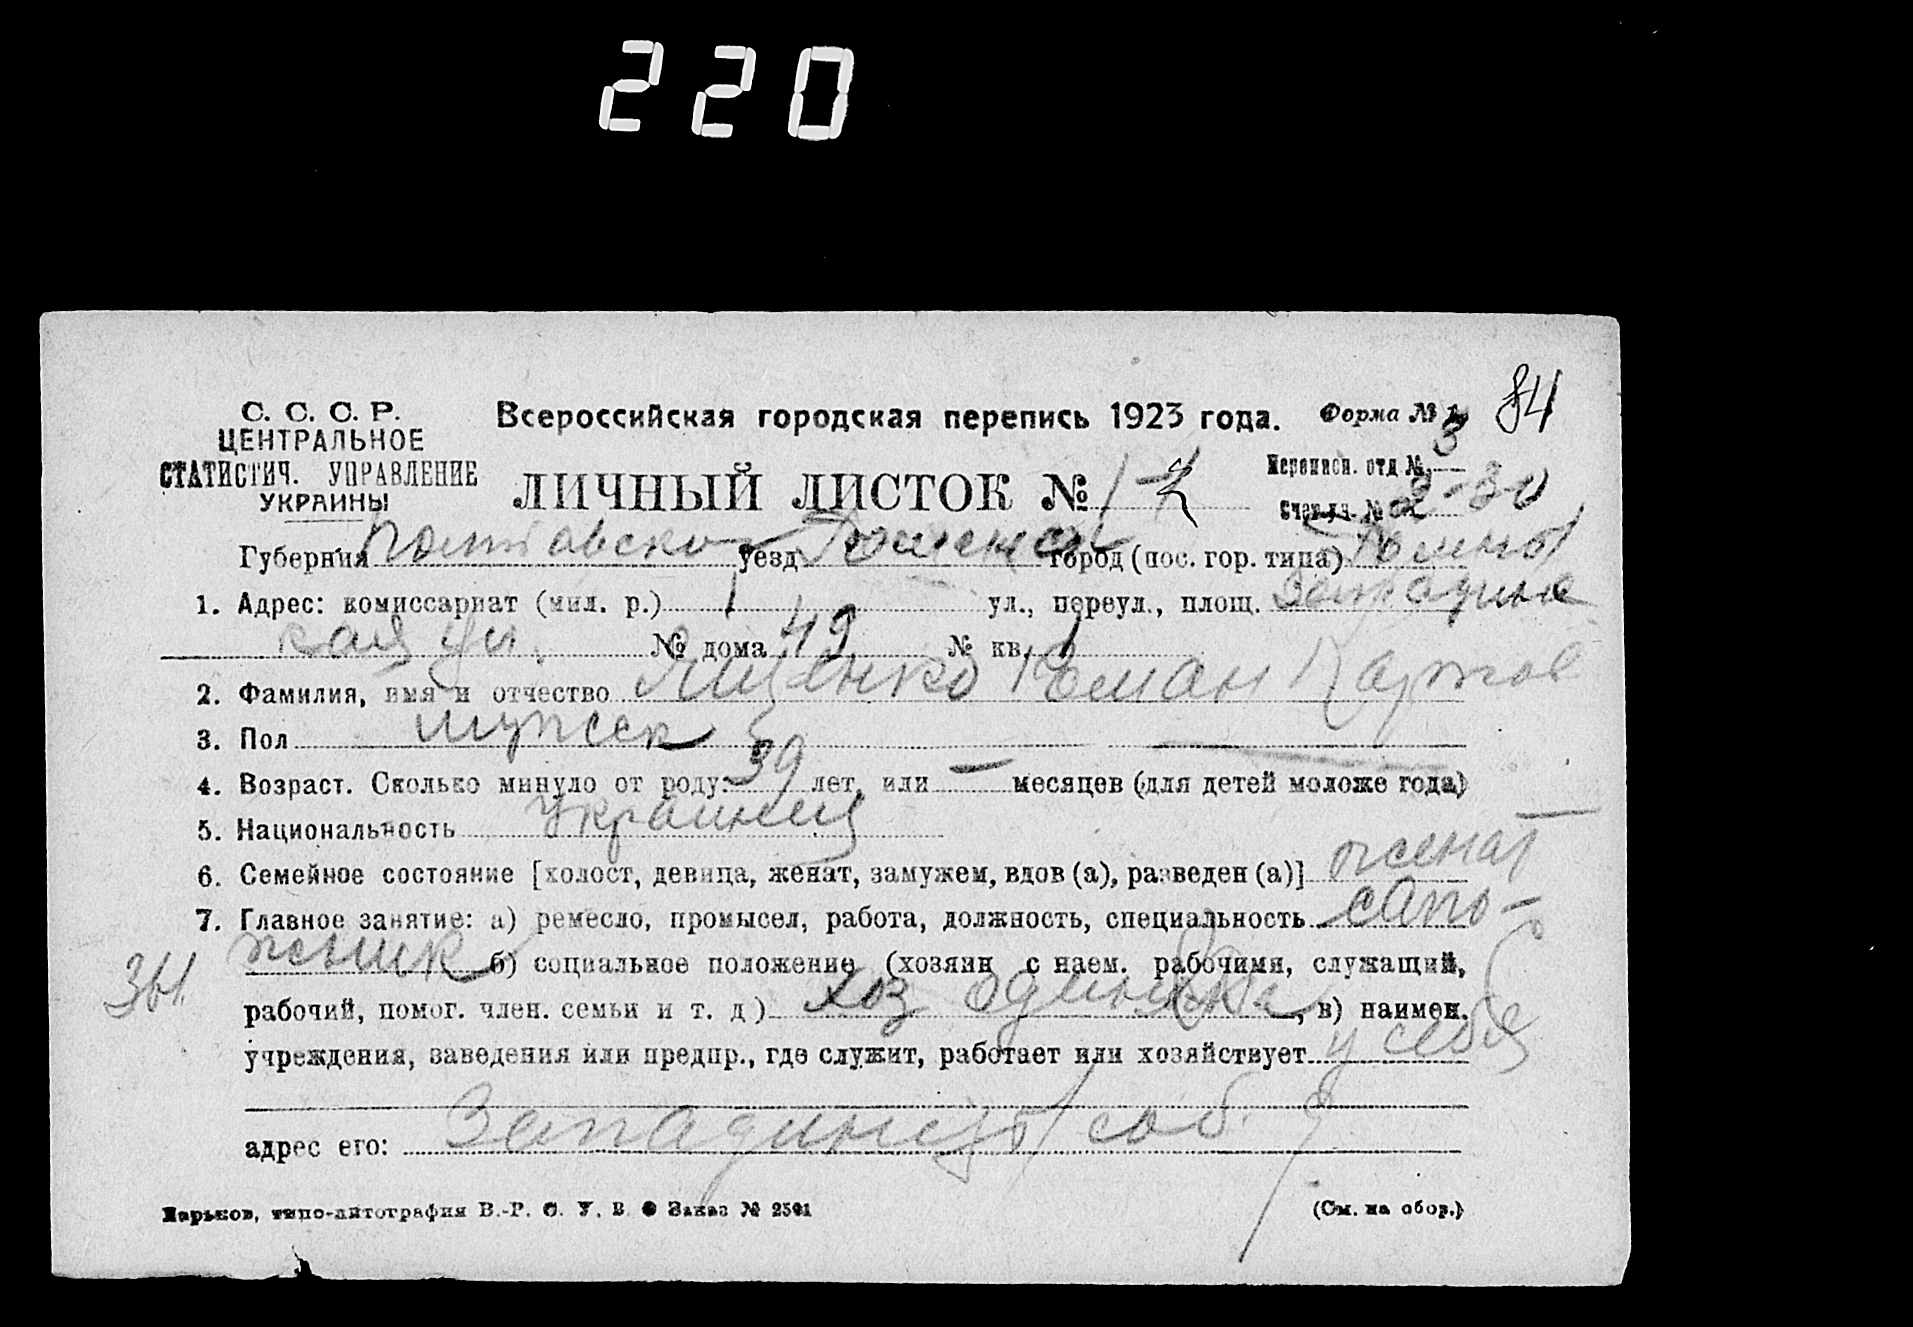 220
С. С. С. Р.
ЦЕНТРАЛЬНОЕ
СТАТИСТИЧ. УПРАВЛЕНИЕ
УКРАИНЫ
Всероссийская городская перепись 1923 года.
Форма № 1
84
3
ЛИЧНЫЙ ЛИСТОК № 1
Переписн. отд №
Счетн. уч. № 2-30
Губерния Полтавско уезд Роменск город (пос. гор. типа) Ромны
1. Адрес: комиссариат (мил. р.) 1 ул., переул., площ. Западинс
кая ул. № дома 49 № кв. 1
2. Фамилия, имя и отчество Ященко Роман Карпов
3. Пол мужск
4. Возраст. Сколько минуло от роду: 39 лет, или — месяцев (для детей моложе года)
5. Национальность украинец
6. Семейное состояние [холост, девица, женат, замужем, вдов (а), разведен (а)] женат
7. Главное занятие: а) ремесло, промысел, работа, должность, специальность сапо-
жник б) социальное положение (хозяин с наем. рабочими, служащий,
рабочий, помог. член. семьи и т. д) хоз одиночка, в) наимен.
учреждения, заведения или предпр., где служит, работает или хозяйствует у себя
адрес его: соб.
Харьков, типо-литография В.-Р. С. У. В. Заказ № 2501
(См. на обор.)